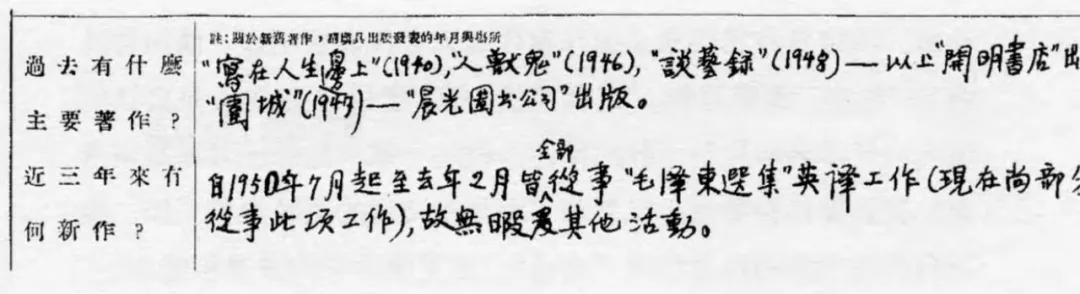 註：關於新舊著作，請填具出版發表的年月與場所
過去有什麼
主要著作？
"寫在人生邊上"(1940),"人獸鬼"(1946),"談藝録"(1948)—以上"開明書店"出
"圍城"(1947)—"晨光圖书公司"出版。
近三年來有
何新作？
全部
自1950年7月起至去年2月皆從事"毛澤東選集"英译工作(現在尚部分
從事此项工作),故無暇及其他活動。